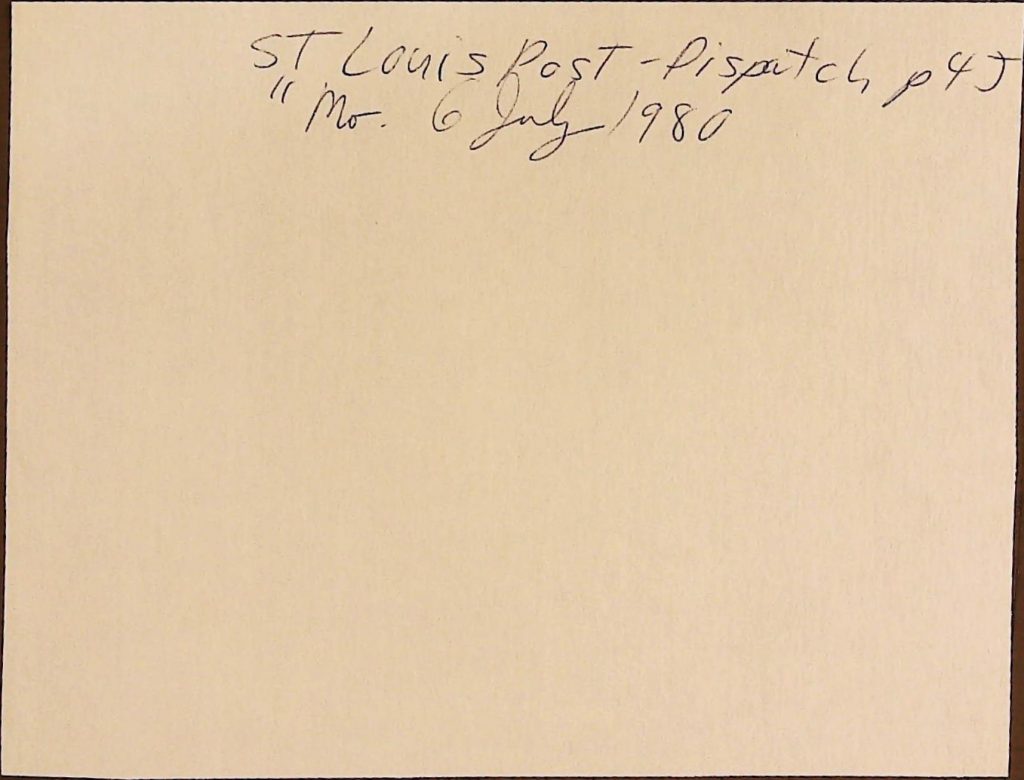 ST Louis Post-Dispatch, p 4J
" Mo. 6 July 1980